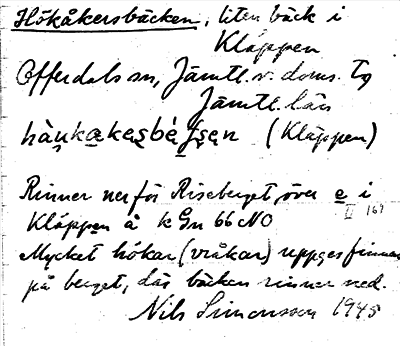 Hökåkersbäcken, liten bäck i
Kläppen
Offerdals sn, Jämtl. v. doms. Tg
Jämtl. län
(Kläppen)
Rinner ner för Riseberget över e i
Kläppen å k Gn 66 NO
II 169
Mycket hökar (vråkar) uppges finnas
på berget, där bäcken rinner ned.
Nils Simonsson 1945